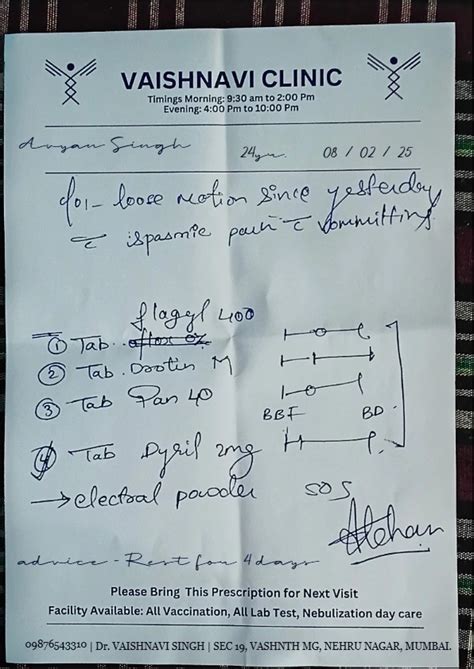 VAISHNAVI CLINIC
Timings Morning: 9:30 am to 2:00 Pm
Evening: 4:00 Pm to 10:00 Pm
Aryan Singh 24yr. 08 / 02 / 25
loose motion since yesterday
c̄ spasmic pain c̄ vommitting
flagyl 400
① Tab.
② Tab. Drotin M
③ Tab Pan 40
BBF BD
④ Tab 2mg
→ electral powder SOS
advice - Rest for 4 days
Please Bring This Prescription for Next Visit
Facility Available: All Vaccination, All Lab Test, Nebulization day care
09876543310 | Dr. VAISHNAVI SINGH | SEC 19, VASHNTH MG, NEHRU NAGAR, MUMBAI.